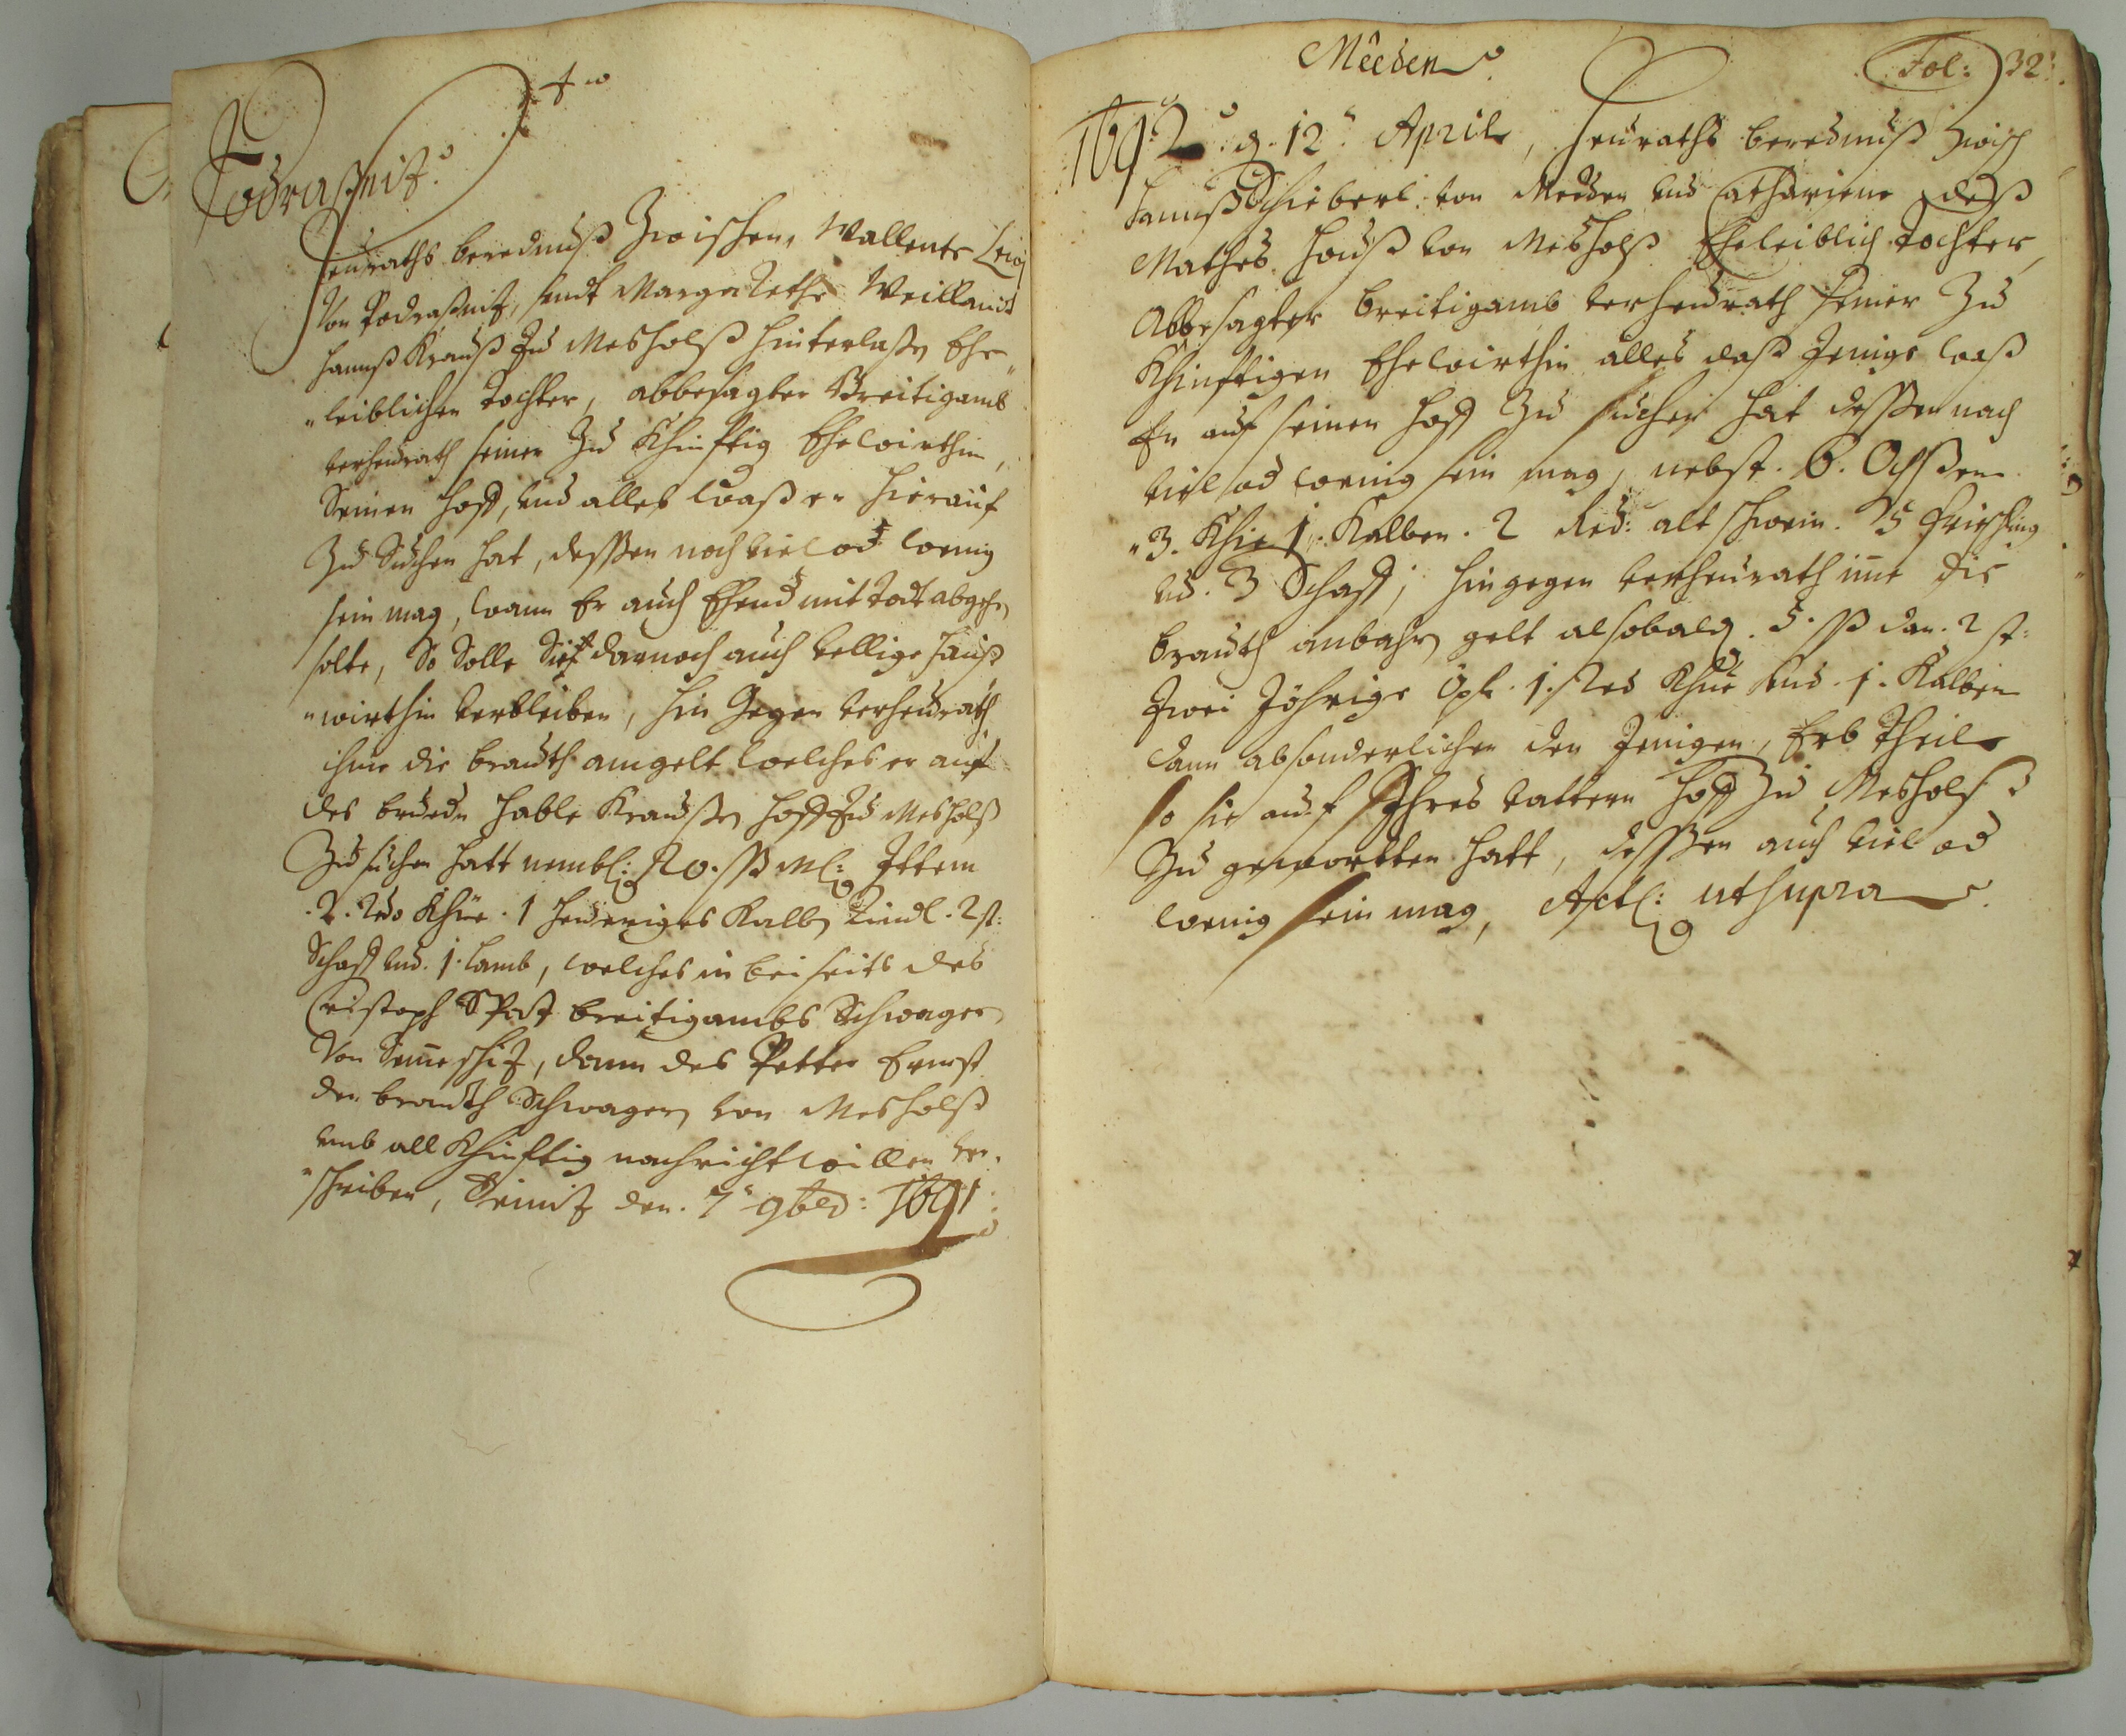 Podraßnitz.
Heuraths berednuß Zwischen, Wallente
Von Podraßnitz, sambt Margarethe Weillandt
Hannß Krauß Zu Mesholß hinterlaßen Ehe„
„leiblichen Tochter, abbesagter Breitigamb
verheurath seiner Zu Khinfftig Ehewirthin,
Seinen Hoff, und alles waß er hierauf
Zu Suchen hat, dessen noch viel od wenig
sein mag, wann Er auch Ehend mit Todt abgehen
solte, So Solle Sie darnoch auch vellige Hauß
„wirthin verbleiben, hin Gegen verheurath
ihme die Brauth amgelt welches er auf
des Bruedr Hable Kraußen Hoff Zu Mesholß
Zu suchen hatt nembl: 20. ß M: Ittem
.2. Khüe . 1 heueriges Kalb, 2 st:
Schaff und . 1. Lamb, welches in beiseits des
Cristoph Breitigambs Schwager,
Von Semeschitz, dann des Petter Ernst
der Brauth Schwager, von Mesholß
umb all Khinfftig nachricht willen ver„
„schriben, Teinitz den . 7 9ber: 1691
Mêeden.
Fol: 32.
1692 . d. 12. April, Heuraths beredtnuß Zwisch
Hannß Schieberl. von Meeden und Cathariena deß
Mathes Hauß von Mesholß Eheleiblich Tochter,
Abbesagter Breitigamb verheurath seiner Zu
Khinfftigen Ehewirthin alles daß Jenige waß
Er auf seinen Hoff Zu suchen hat dessen noch
viel od wenig sein mag, nebst . 6. Ochßen
„3. Khie 1. Kalben . 2 Red: alt schwein . 5 Frischling
ud. 3 Schaff; hingegen verheurath ime die
Brauth anbahren gelt alsobald . 5. ß dan . 2 st:
Zwei Jöhrige Öxl . 1. Khue und . 1. Kalben
dann absonderlichen den Jenigen, Erb Theil
so sie auf Ihres vattern Hoff Zu Mesholß
Zu gewortten hatt, dessen auch viel od
wenig sein mag, Actl: ut supra.